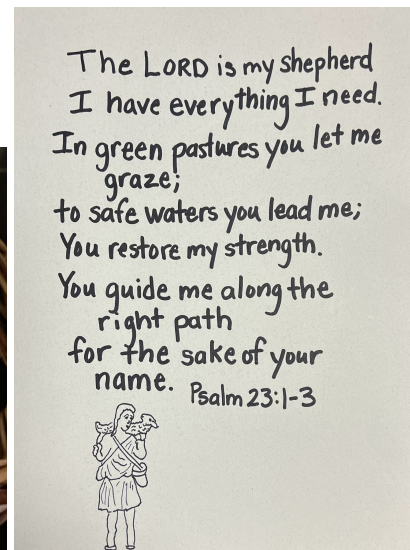 The LORD is my shepherd
I have everything I need.
In green pastures you let me
graze;
to safe waters you lead me;
You restore my strength.
You guide me along the
right path
for the sake of your
name. Psalm 23:1-3